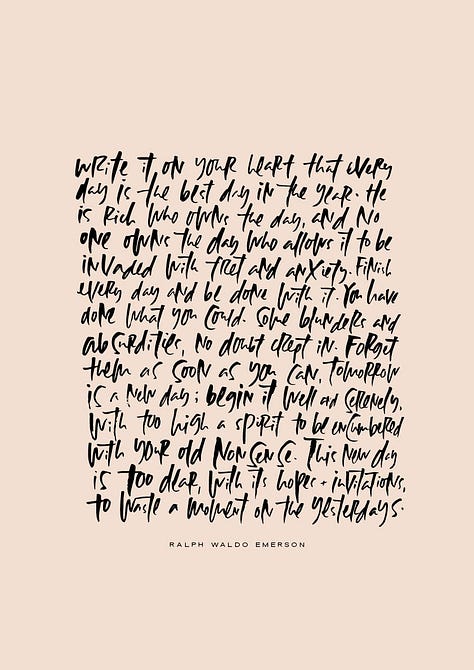 write it on your heart that every
day is the best day in the year. He
is Rich Who owns the day, and No
one owns the day Who allows it to be
invaded with fret and anxiety. Finish
every day and be done with it. You have
done what you could. Some blunders and
absurdities, no doubt crept in. Forget
them as soon as you can, tomorrow
is a new day; begin it well and serenely,
with too high a spirit to be encumbered
with your old nonsense. This new day
is too dear, with its hopes + invitations,
to waste a moment on the yesterdays.
RALPH WALDO EMERSON